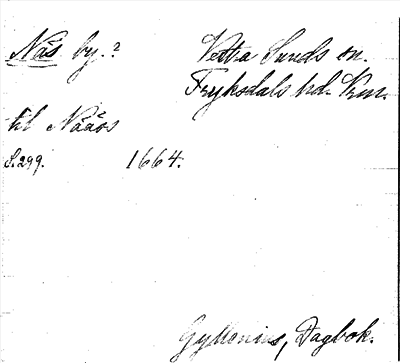 Näs by.?
Västra Sunds sn.
Fryksdals hd. Vrm.
til Nääs
S. 299.
1664.
Gyllenius, Dagbok.